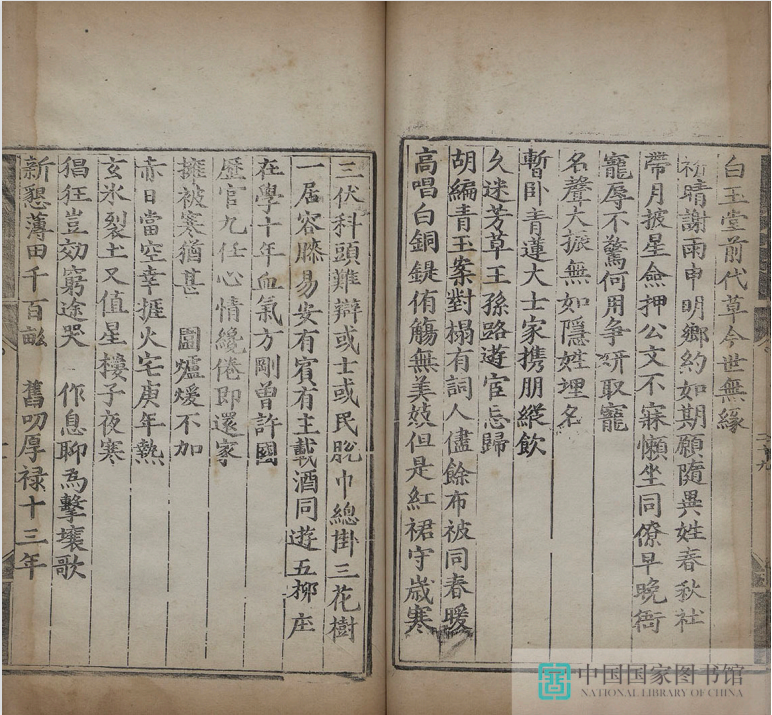 白玉堂前代草今世無緣
祈晴謝雨申明鄉約如期願隨異姓春秋社
帶月披星僉押公文不寐懶坐同僚早晚衙
寵辱不驚何用爭妍取寵
名聲大振無如隱姓埋名
暫卧青蓮大士家携朋縱飲
久迷芳草王孫路遊宦忘歸
胡編青玉案對榻有詞人儘餘布被同春暖
高唱白銅鍉侑觴無美妓但是紅裙守歲寒
三伏科頭難辯或士或民脫巾總掛三花樹
一居容膝易安有賓有主載酒同遊五柳座
在學十年血氣方剛曾許國
歷官九任心情纔倦即還家
擁被寒猶甚 圍爐煖不加
赤日當空幸捱火宅庚年熱
玄氷裂土又值星樓子夜寒
猖狂豈効窮途哭 作息聊為擊壤歌
新懇薄田千百畝 舊叨厚禄十三年
中国国家图书馆
NATIONAL LIBRARY OF CHINA